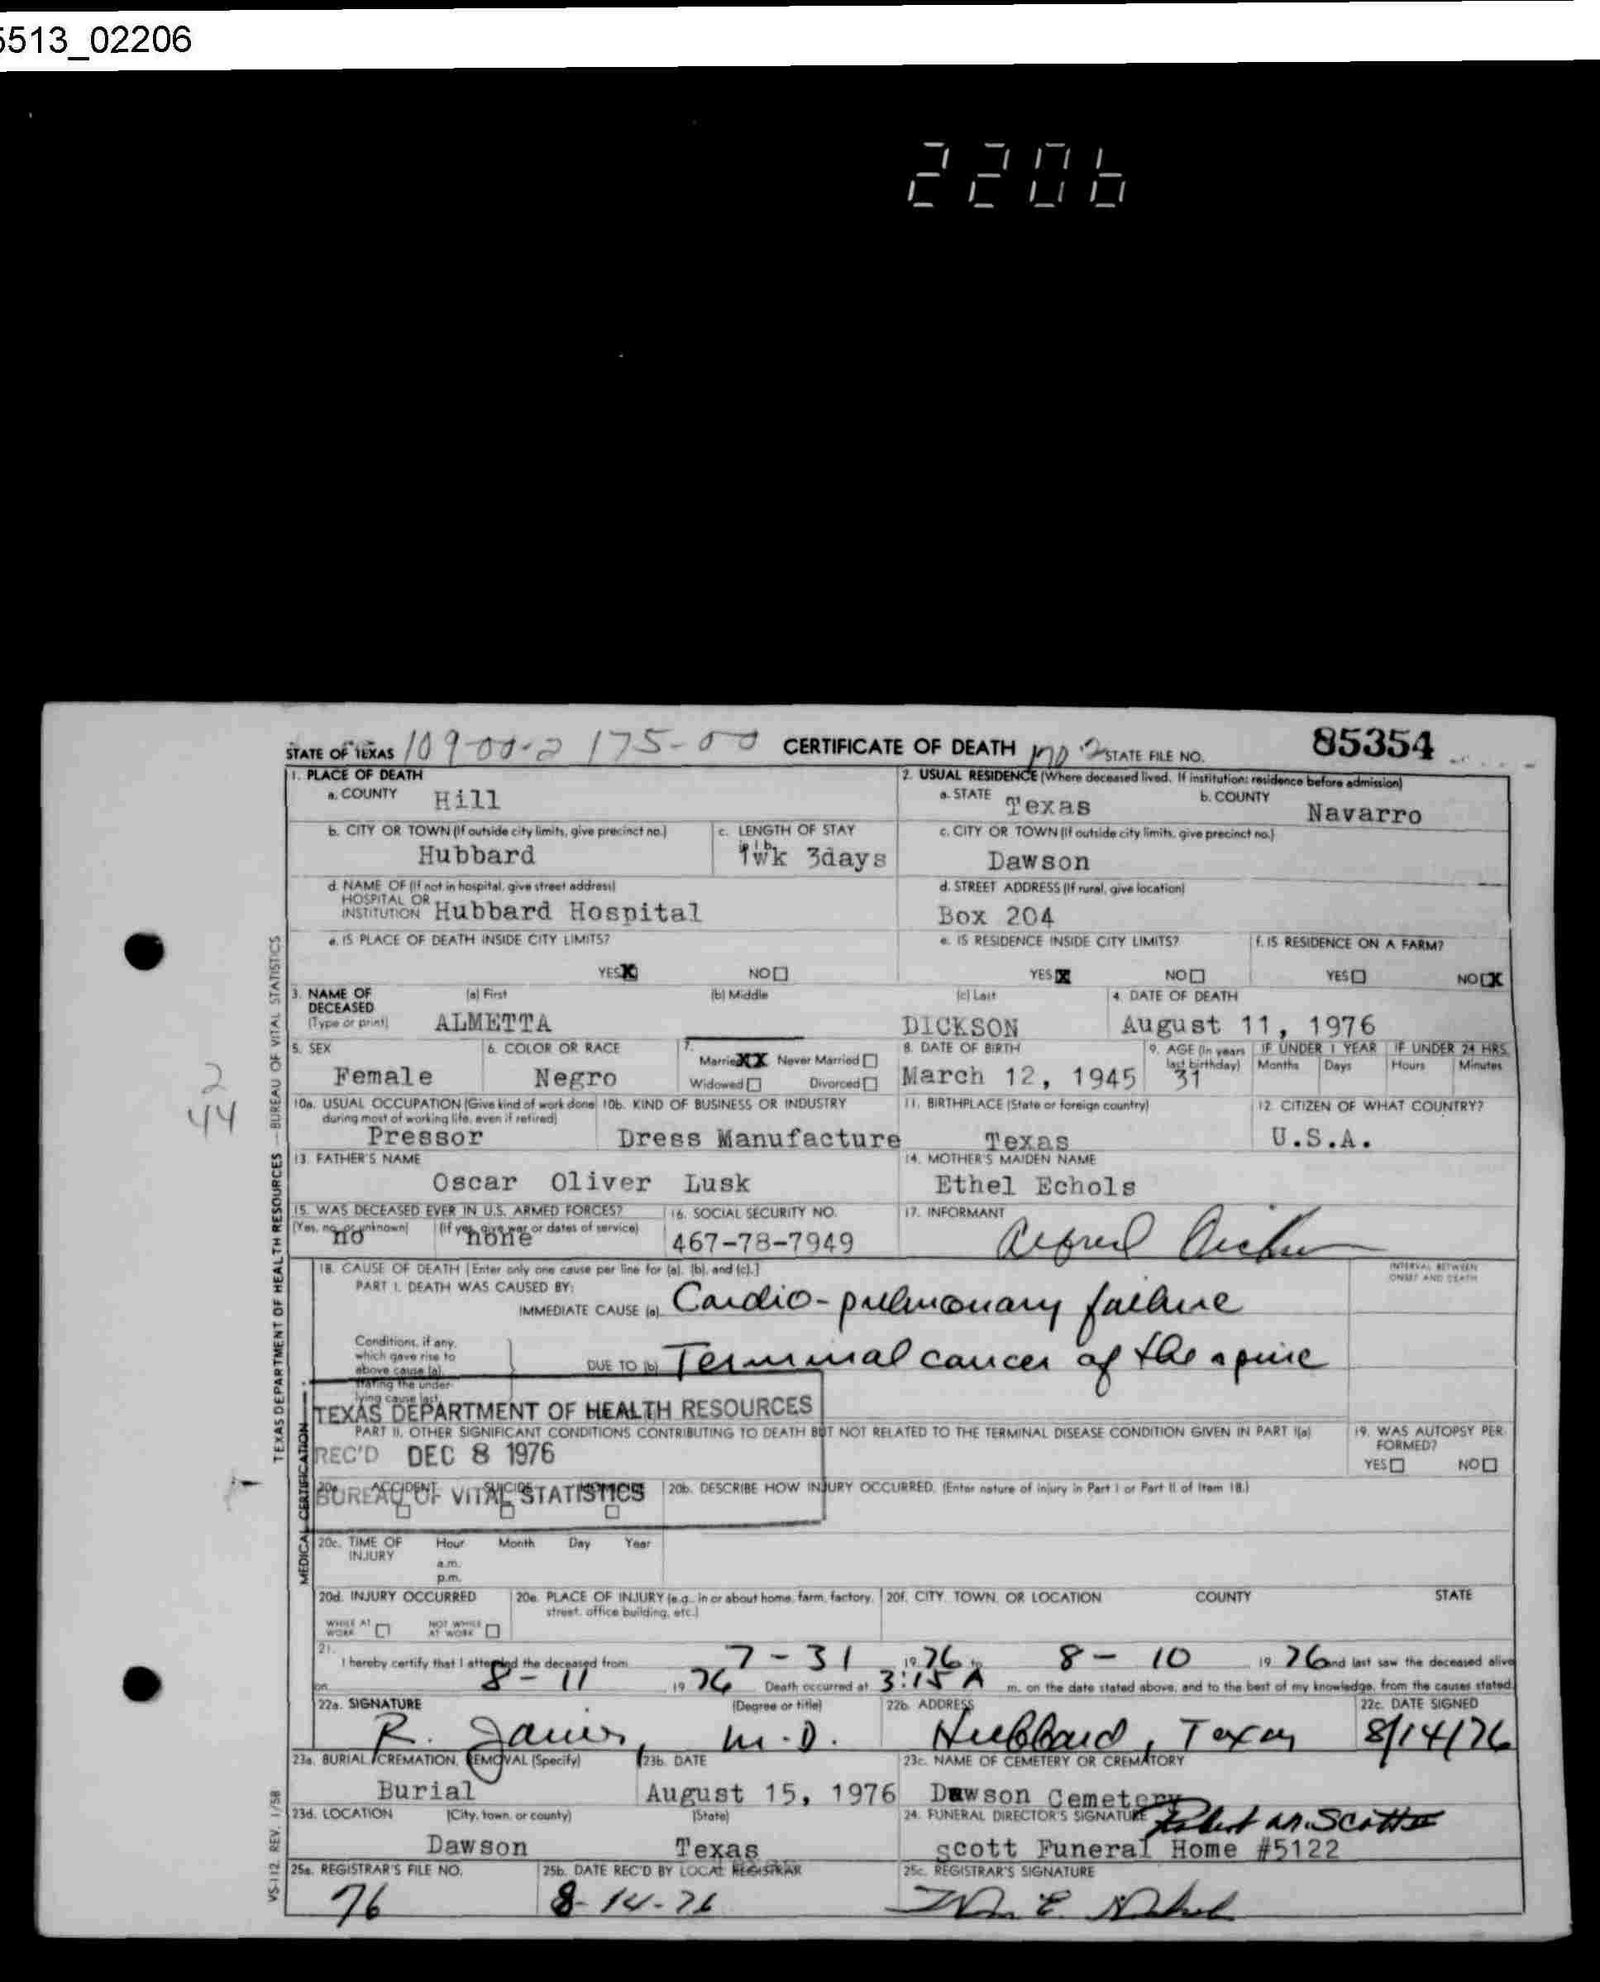 5513_02206
2206
STATE OF TEXAS 109-00-2 175-00 CERTIFICATE OF DEATH STATE FILE NO. 85354
1. PLACE OF DEATH 2. USUAL RESIDENCE (Where deceased lived. If institution: residence before admission)
a. COUNTY Hill a. STATE Texas b. COUNTY Navarro
b. CITY OR TOWN (If outside city limits, give precinct no.) c. LENGTH OF STAY c. CITY OR TOWN (If outside city limits, give precinct no.)
Hubbard 1wk 3days Dawson
d. NAME OF (If not in hospital, give street address) d. STREET ADDRESS (If rural, give location)
HOSPITAL OR
INSTITUTION Hubbard Hospital Box 204
e. IS PLACE OF DEATH INSIDE CITY LIMITS? e. IS RESIDENCE INSIDE CITY LIMITS? f. IS RESIDENCE ON A FARM?
YES X NO YES X NO YES NO X
3. NAME OF (a) First (b) Middle (c) Last 4. DATE OF DEATH
DECEASED
(Type or print) ALMETTA DICKSON August 11, 1976
5. SEX 6. COLOR OR RACE 7. 8. DATE OF BIRTH 9. AGE (In years IF UNDER 1 YEAR IF UNDER 24 HRS.
Married XX Never Married last birthday) Months Days Hours Minutes
Female Negro Widowed Divorced March 12, 1945 31
2
44
10a. USUAL OCCUPATION (Give kind of work done 10b. KIND OF BUSINESS OR INDUSTRY 11. BIRTHPLACE (State or foreign country) 12. CITIZEN OF WHAT COUNTRY?
during most of working life, even if retired)
Pressor Dress Manufacture Texas U.S.A.
13. FATHER'S NAME 14. MOTHER'S MAIDEN NAME
Oscar Oliver Lusk Ethel Echols
15. WAS DECEASED EVER IN U.S. ARMED FORCES? 16. SOCIAL SECURITY NO. 17. INFORMANT
(Yes, no, or unknown) (If yes, give war or dates of service)
no none 467-78-7949 Alfred Dickson
18. CAUSE OF DEATH [Enter only one cause per line for (a), (b), and (c).] INTERVAL BETWEEN
ONSET AND DEATH
PART I. DEATH WAS CAUSED BY:
IMMEDIATE CAUSE (a) Cardio-pulmonary failure
Conditions, if any,
which gave rise to
above cause (a), DUE TO (b) Terminal cancer of the spine
stating the under-
lying cause last.
TEXAS DEPARTMENT OF HEALTH RESOURCES
PART II. OTHER SIGNIFICANT CONDITIONS CONTRIBUTING TO DEATH BUT NOT RELATED TO THE TERMINAL DISEASE CONDITION GIVEN IN PART I(a) 19. WAS AUTOPSY PER-
FORMED?
REC'D DEC 8 1976 YES NO
20a. ACCIDENT SUICIDE 20b. DESCRIBE HOW INJURY OCCURRED. (Enter nature of injury in Part I or Part II of Item 18.)
BUREAU OF VITAL STATISTICS
20c. TIME OF Hour Month Day Year
INJURY a.m.
p.m.
20d. INJURY OCCURRED 20e. PLACE OF INJURY (e.g., in or about home, farm, factory, 20f. CITY, TOWN, OR LOCATION COUNTY STATE
street, office building, etc.)
WHILE AT WORK NOT WHILE AT WORK
21.
I hereby certify that I attended the deceased from 7-31 1976 to 8-10 1976 and last saw the deceased alive
on 8-11 1976 Death occurred at 3:15 A m. on the date stated above, and to the best of my knowledge, from the causes stated.
22a. SIGNATURE (Degree or title) 22b. ADDRESS 22c. DATE SIGNED
R. M.D. Hubbard, Texas 8/14/76
23a. BURIAL, CREMATION, REMOVAL (Specify) 23b. DATE 23c. NAME OF CEMETERY OR CREMATORY
Burial August 15, 1976 Dawson Cemetery
23d. LOCATION (City, town, or county) (State) 24. FUNERAL DIRECTOR'S SIGNATURE Robert M. Scott
Dawson Texas scott Funeral Home #5122
25a. REGISTRAR'S FILE NO. 25b. DATE REC'D BY LOCAL REGISTRAR 25c. REGISTRAR'S SIGNATURE
76 8-14-76
TEXAS DEPARTMENT OF HEALTH RESOURCES — BUREAU OF VITAL STATISTICS
MEDICAL CERTIFICATION
VS-112 REV. 1/58